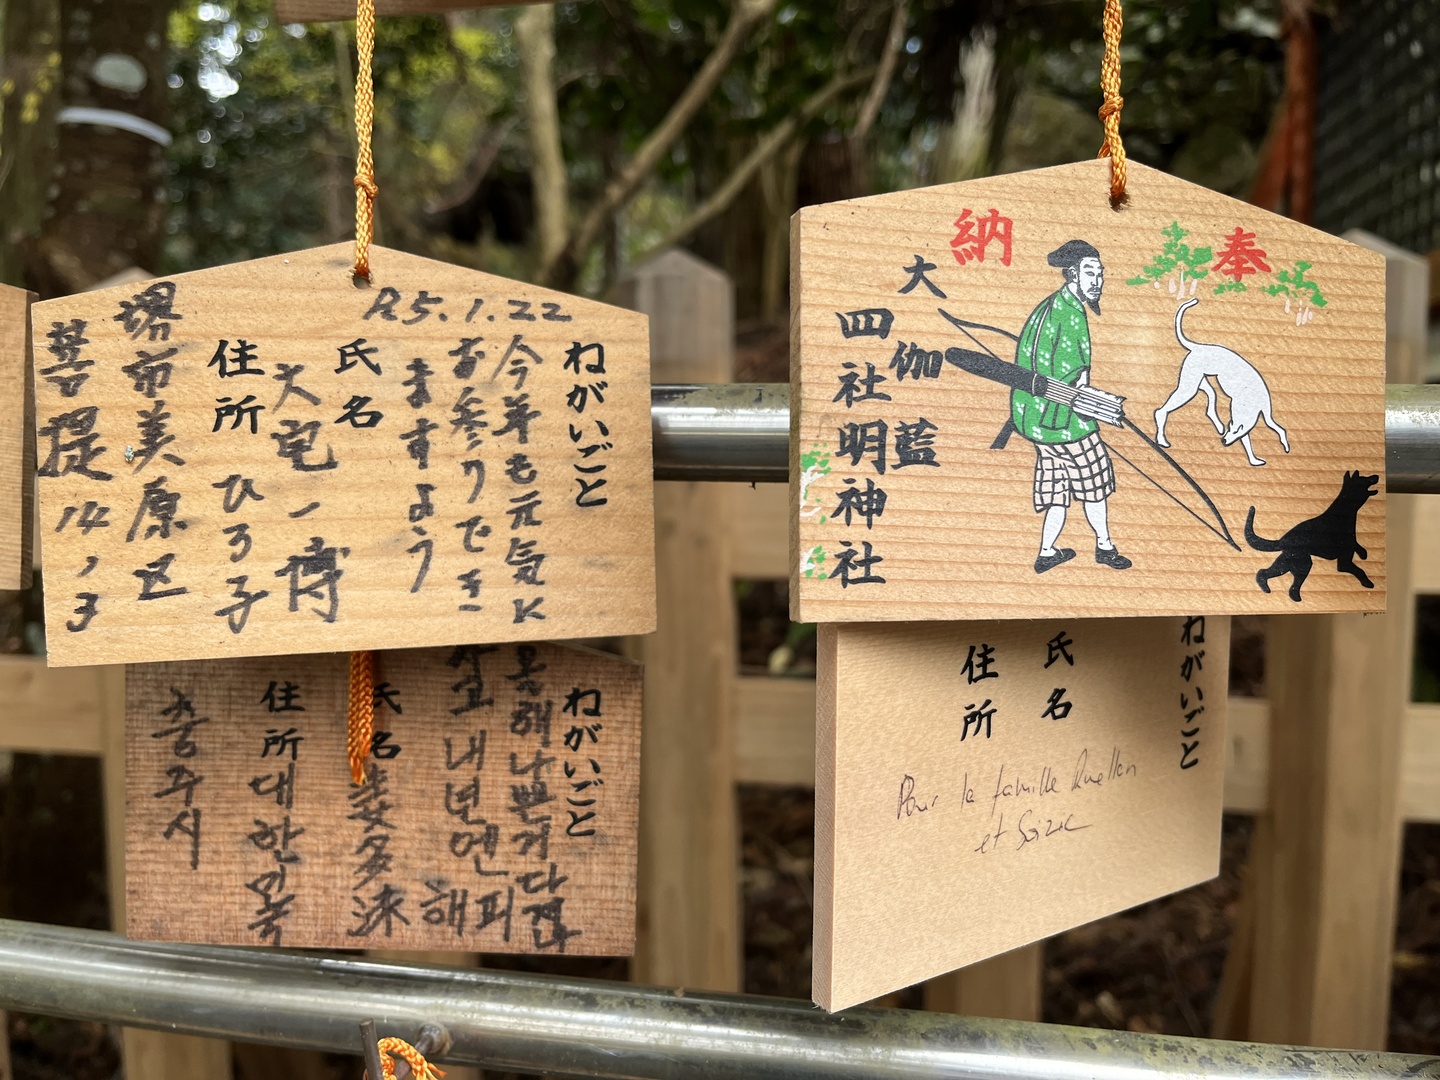 R5.1.22
ねがいごと
今年も元気に
お参りでき
ますよう
氏名
大 一博
ひろ子
住所
堺市美原区
菩提14-3
奉納
大伽藍
四社明神社
ねがいごと
해 나쁜거 다
고 내년엔 피
해
氏名
住所
대한민국
충주시
ねがいごと
氏名
住所
Pour la famille
et Soizic